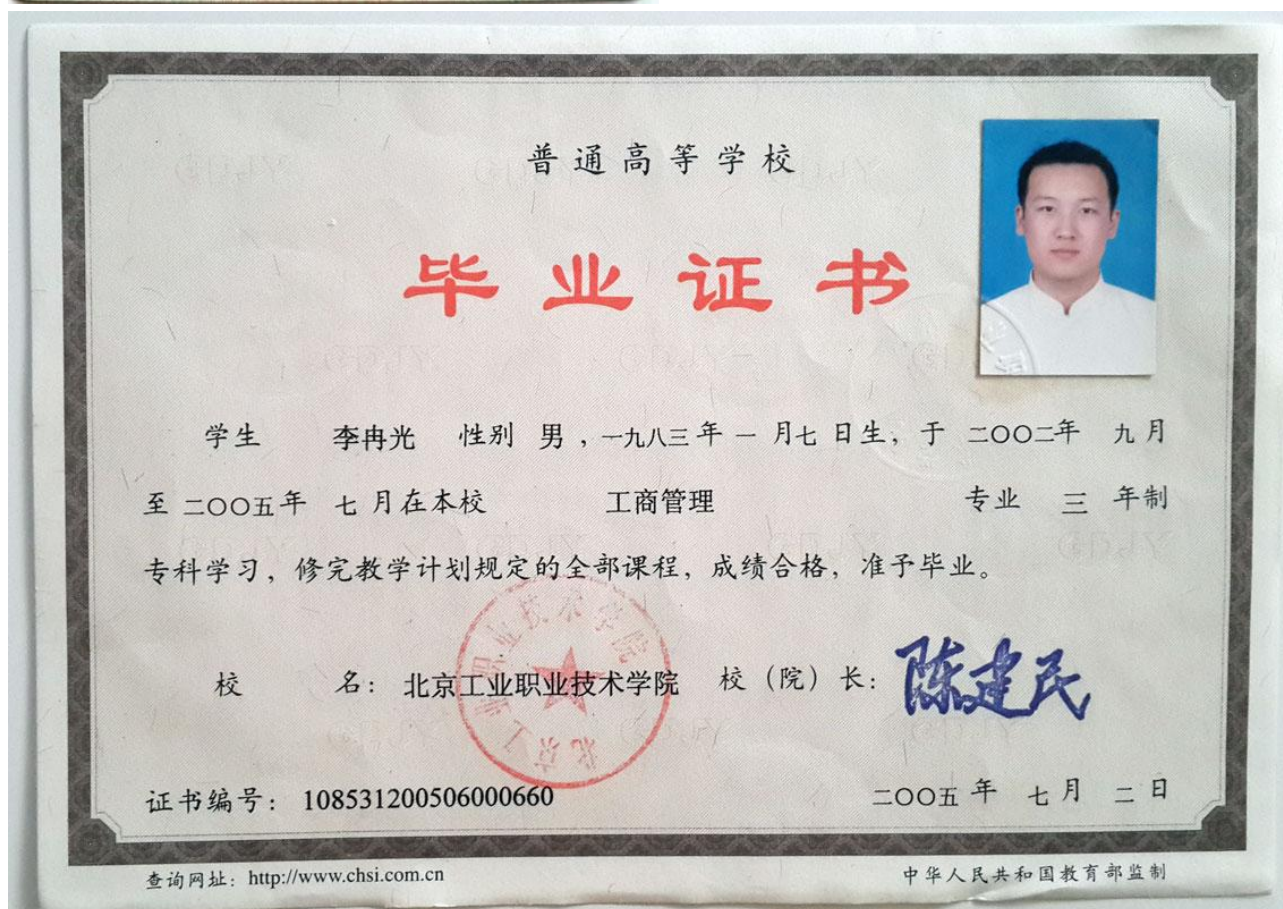 普通高等学校
毕业证书
学生 李冉光 性别 男，一九八三年 一 月七 日生，于 二〇〇二年 九月
至 二〇〇五年 七 月在本校 工商管理 专业 三 年制
专科学习，修完教学计划规定的全部课程，成绩合格，准予毕业。
北京工业职业技术学院
校 名：北京工业职业技术学院 校（院）长：陈建民
证书编号：108531200506000660 二〇〇五 年 七 月 二 日
查询网址：http://www.chsi.com.cn 中华人民共和国教育部监制